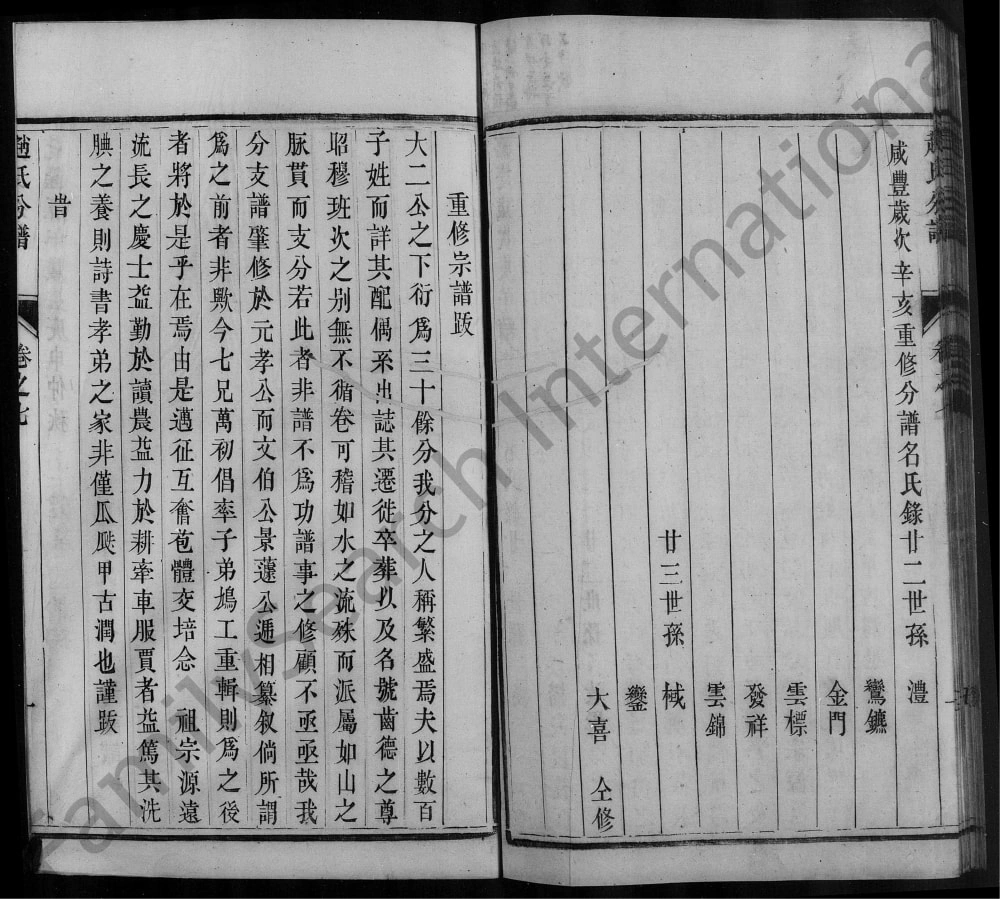 趙氏分譜 卷之七
咸豐歲次辛亥重修分譜名氏錄廿二世孫 澧
鸞鑣
金門
雲標
發祥
雲錦
廿三世孫 棫
鑾
大喜 仝修
重修宗譜跋
大二公之下衍爲三十餘分我分之人稱繁盛焉夫以數百
子姓而詳其配偶系出誌其遷徙卒葬以及名號齒德之尊
昭穆班次之別無不循卷可稽如水之流殊而派屬如山之
脉貫而支分若此者非譜不爲功譜事之修顧不亟亟哉我
分支譜肇修於元孝公而文伯公景蘧公遞相纂叙倘所謂
爲之前者非歟今七兄萬初倡率子弟鳩工重輯則爲之後
者將於是乎在焉由是邁征互奮苞體交培念 祖宗源遠
流長之慶士益勤於讀農益力於耕牽車服賈者益篤其洗
腆之養則詩書孝弟之家非僅瓜瓞甲古潤也謹跋
旹
趙氏分譜 卷之七 一
FamilySearch International